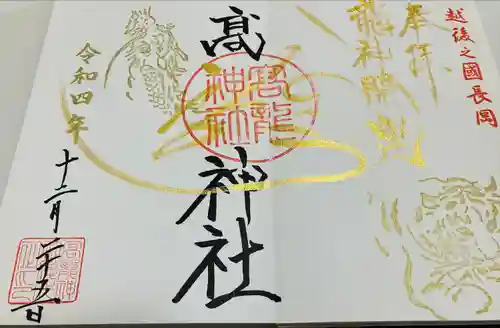 越後之國長岡
奉拝
髙神社
高龍神社
令和四年
十二月二十五日